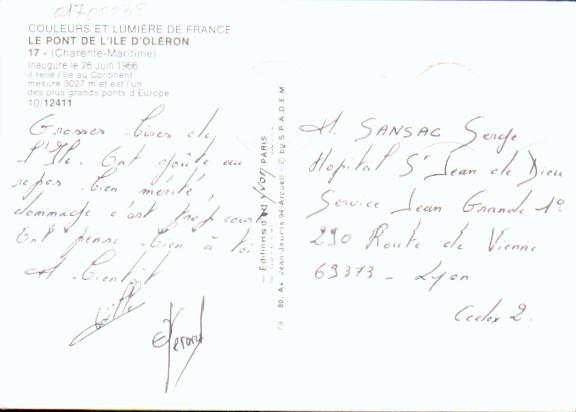 01700038
COULEURS ET LUMIÈRE DE FRANCE
LE PONT DE L'ILE D'OLÉRON
17 - (Charente-Maritime)
Inauguré le 26 Juin 1966
il relie l'Ile au Continent
mesure 3027 m et est l'un
des plus grands ponts d'Europe
10/12411
Grosses bises de
l'Ile. Ont goûte au
repos bien mérité,
dommage c'est trop court
Ont pense bien à toi
A bientôt
Gérard
Editions d'art yvon PARIS
30, Av. Jean-Jaurès-94-Arcueil - © by S.P.A.D.E.M.
M. SANSAC Serge
Hopital St Jean de Dieu
Service Jean Grande 1°
290 Route de Vienne
69373 - Lyon
Cedex 2.